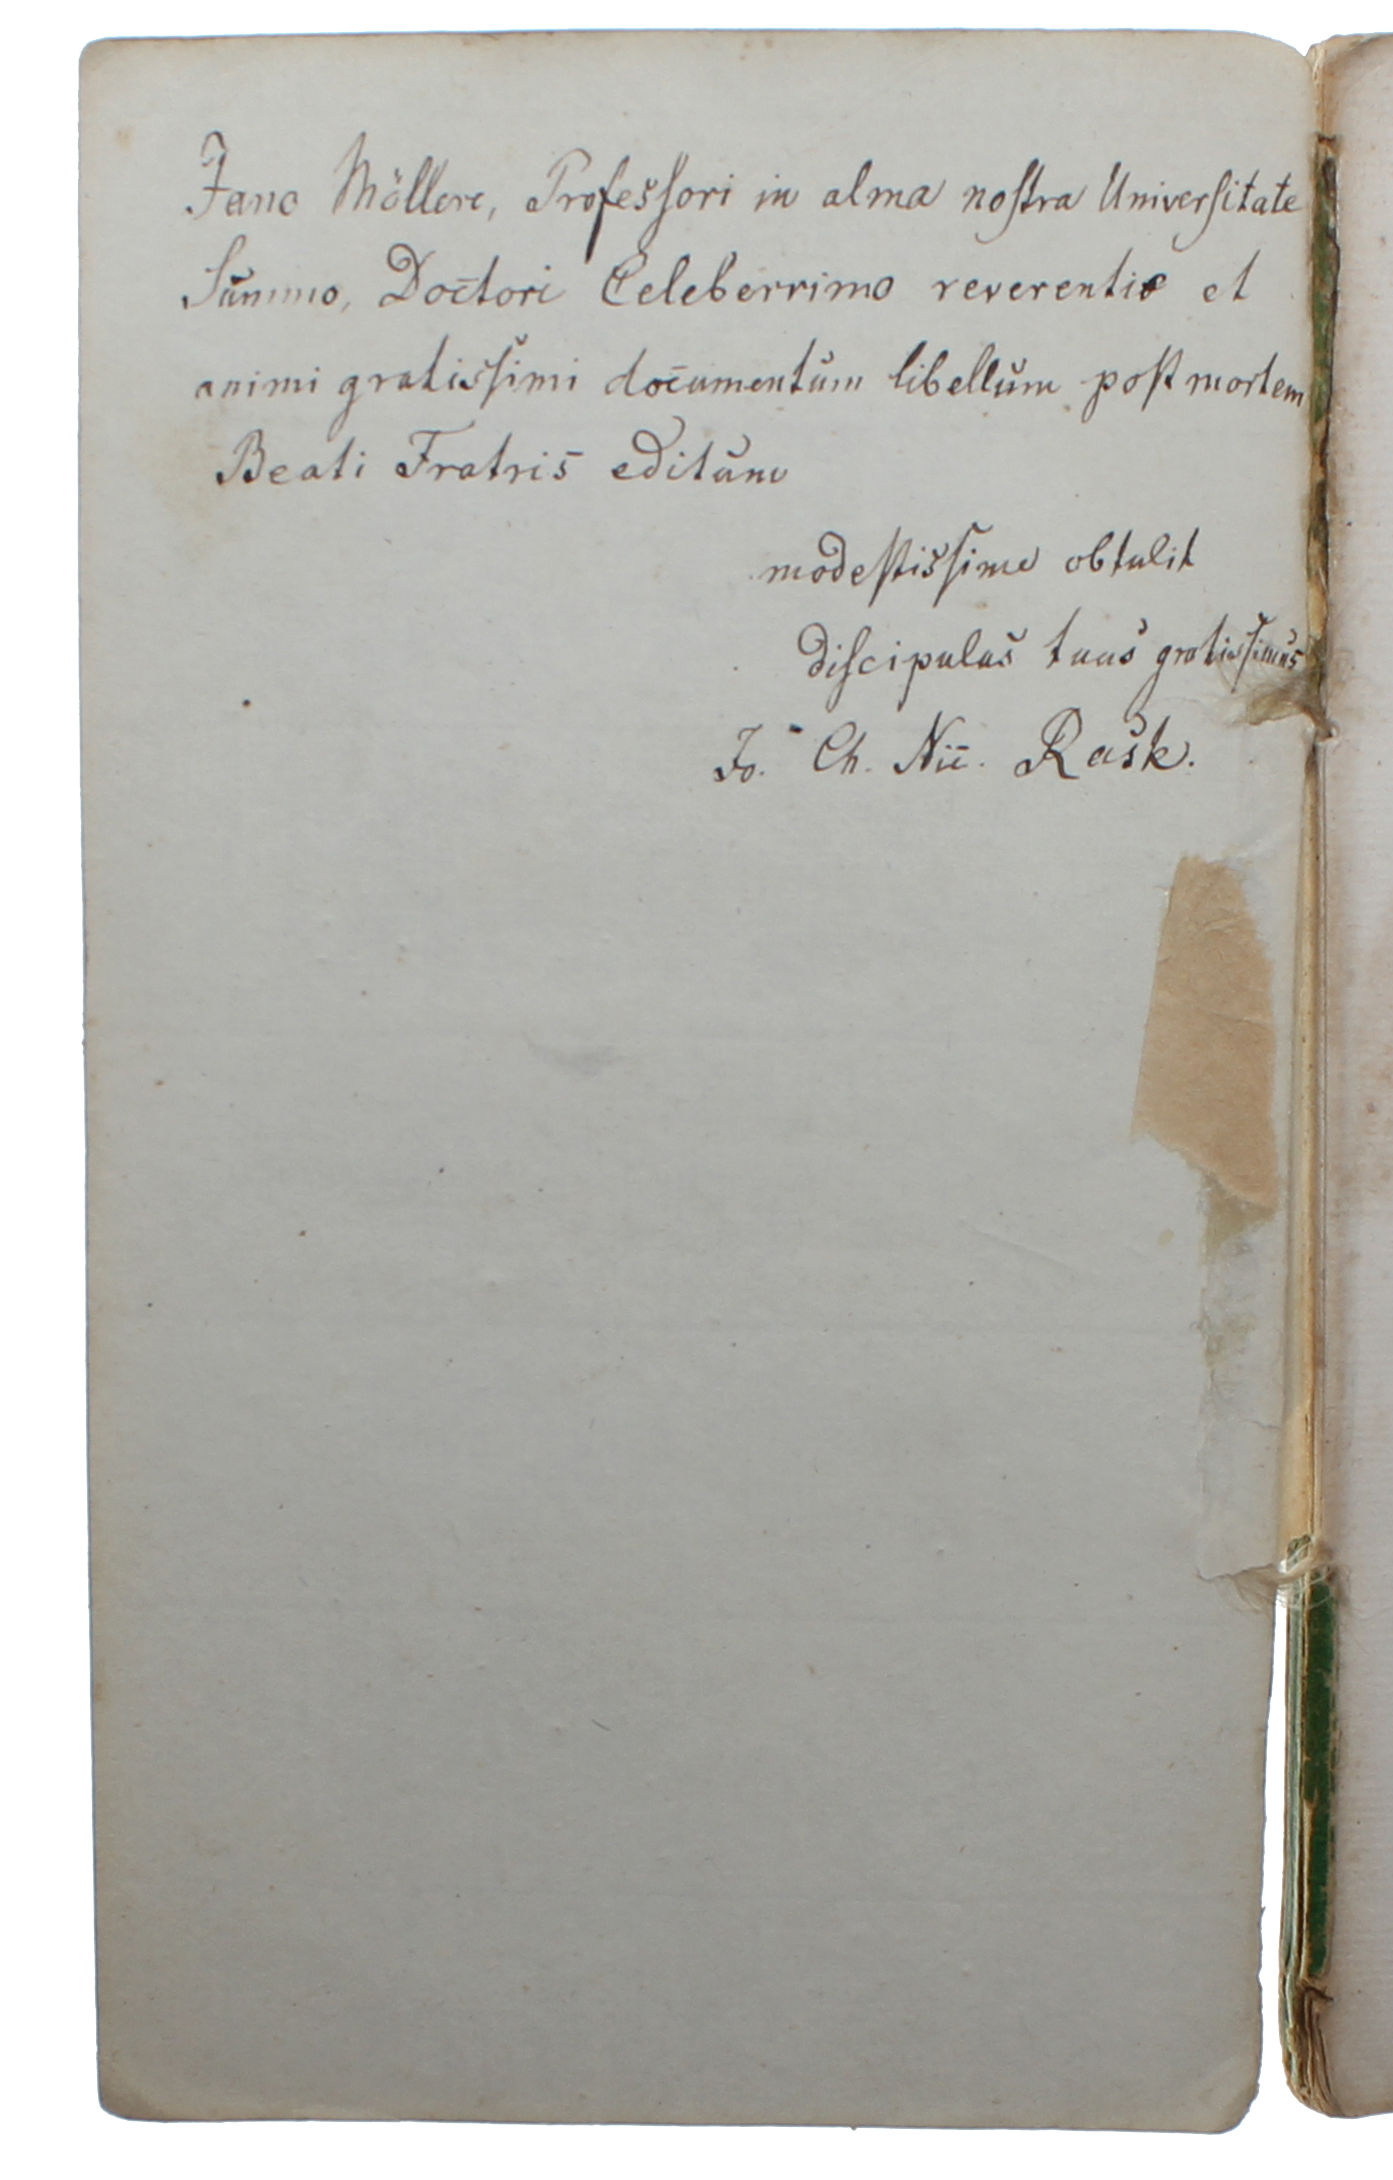 Jano Möllero, Professori in alma nostra Universitate
Summo, Doctori Celeberrimo reverentiæ et
animi gratissimi documentum libellum post mortem
Beati Fratris editum
modestissime obtulit
discipulus tuus gratissimus
Jo. Ch. Nic. Rask.